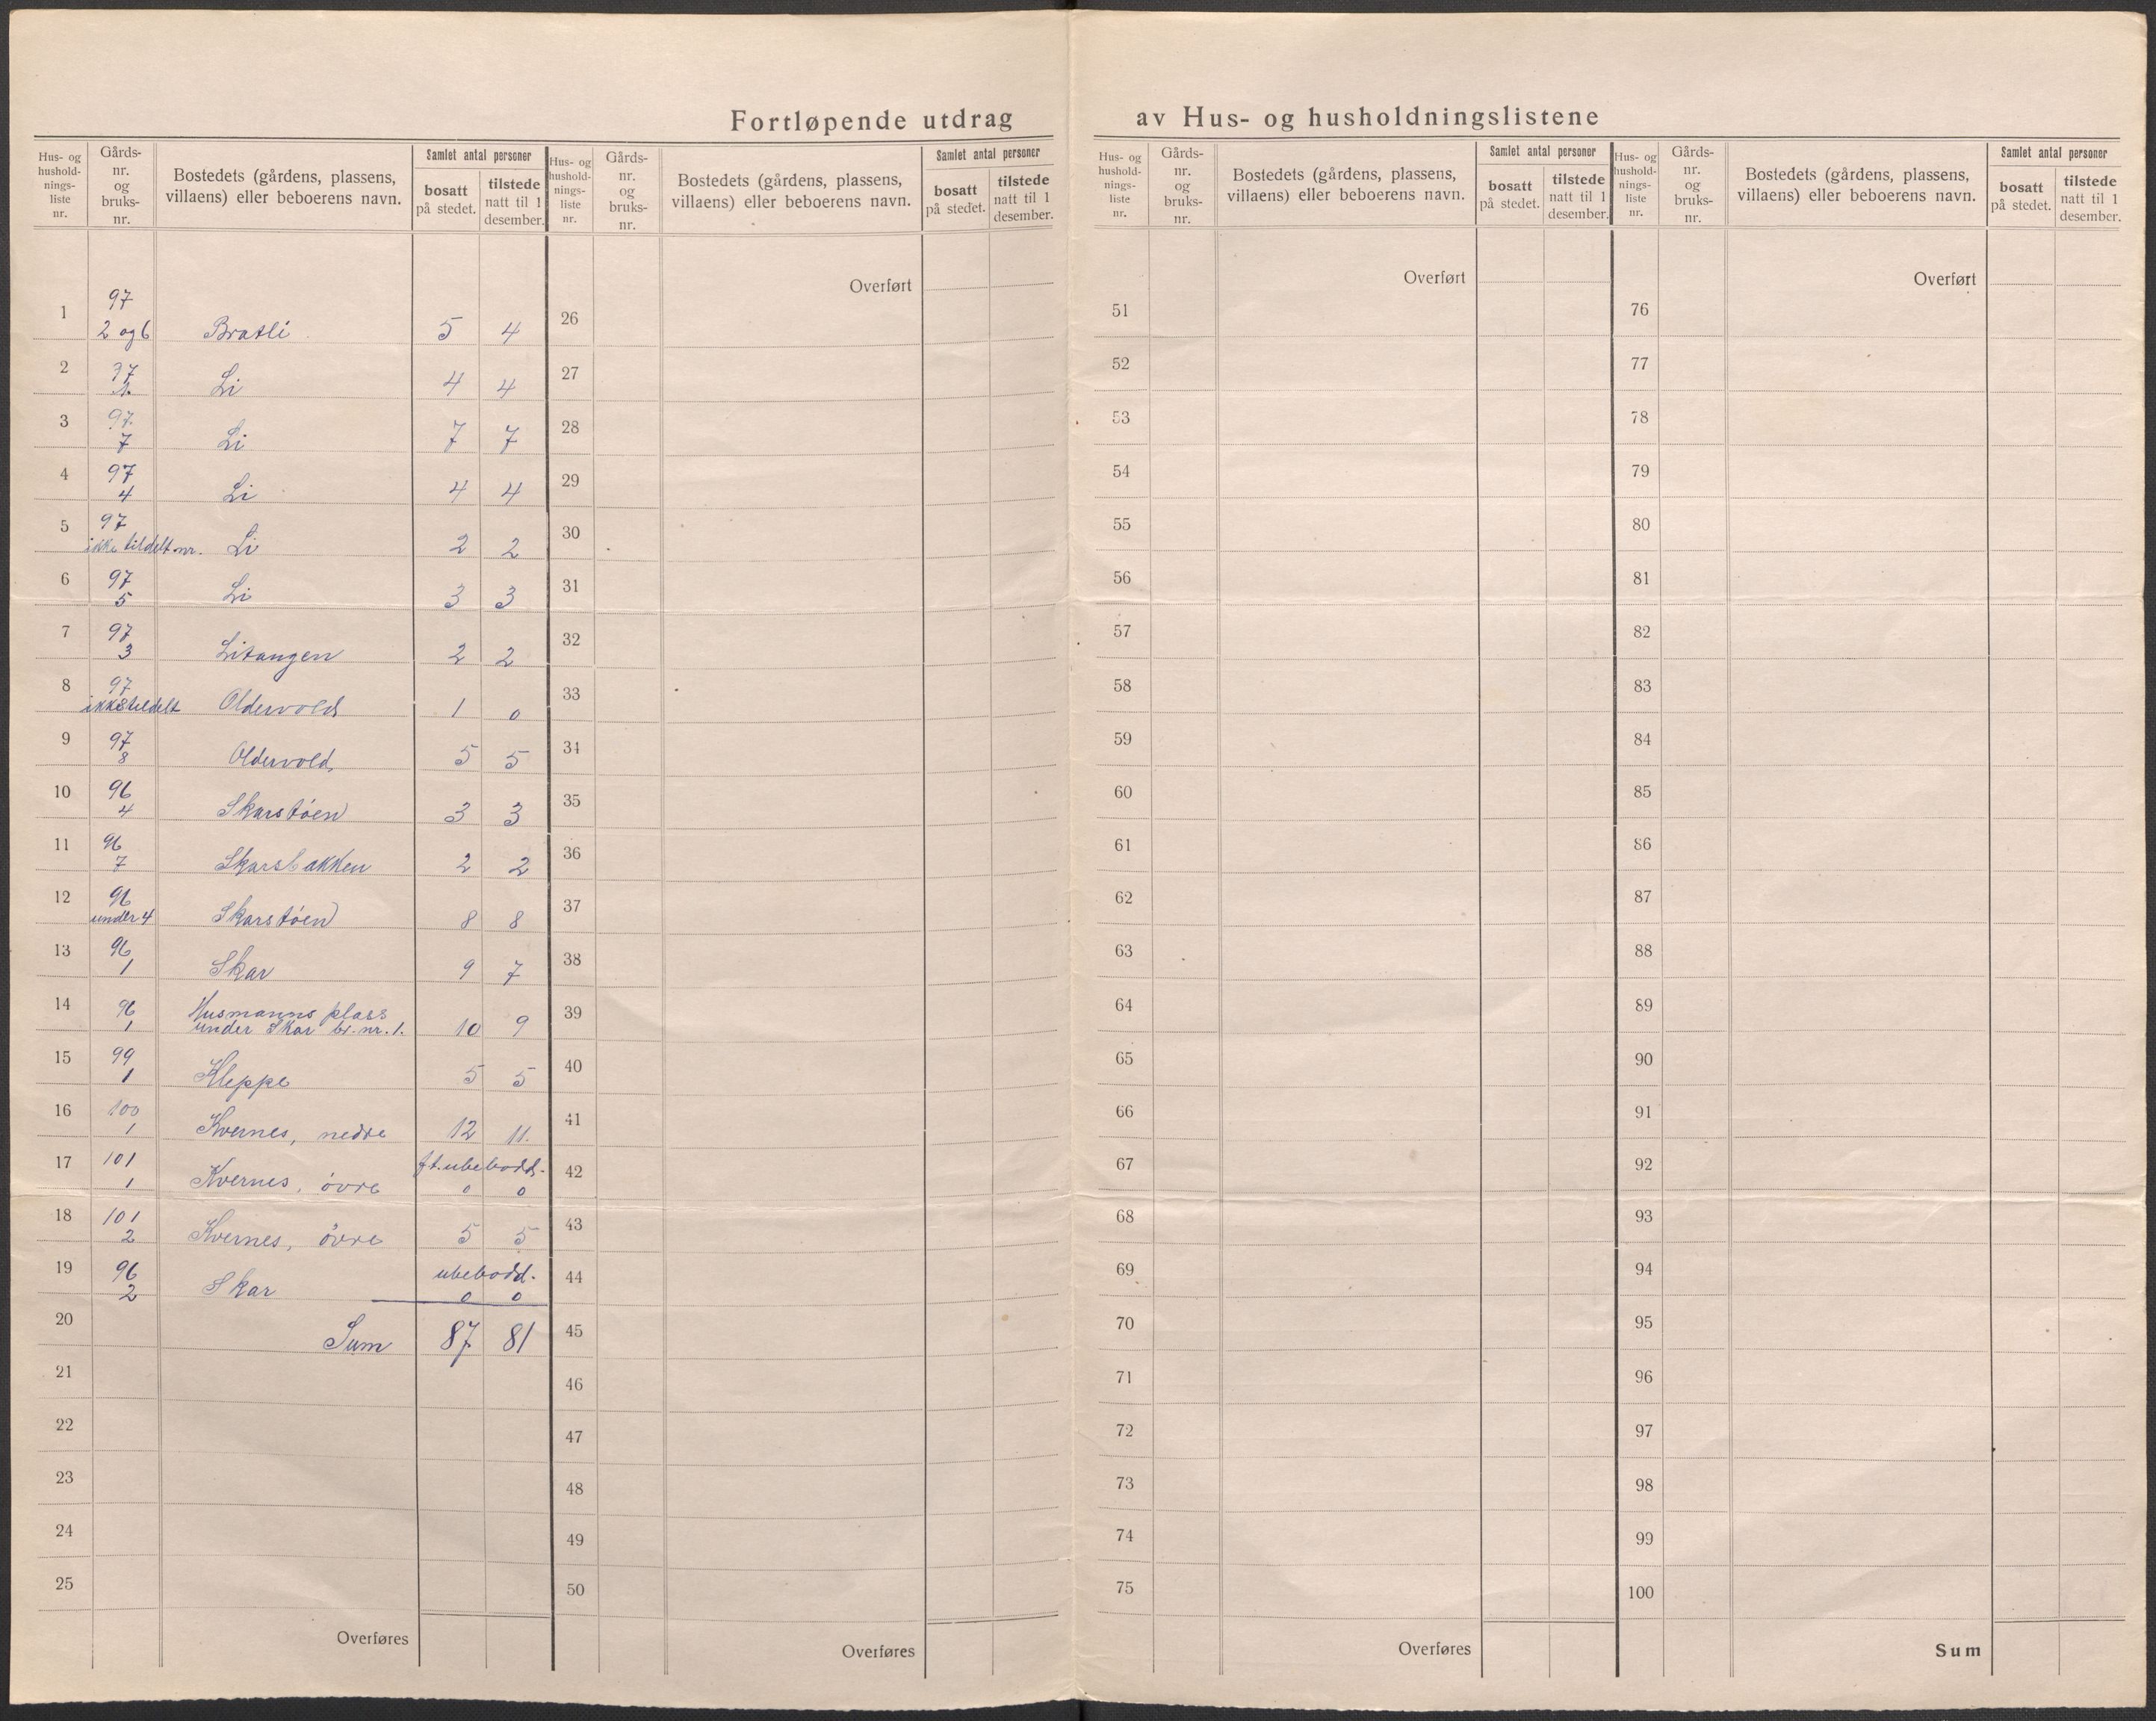 Fortløpende utdrag av Hus- og husholdningslistene
Hus- og hushold-nings-liste nr. | Gårds-nr. og bruks-nr. | Bostedets (gårdens, plassens, villaens) eller beboerens navn. | Samlet antal personer | bosatt på stedet. | tilstede natt til 1 desember.
1 | 97 2 og 6 | Bratli | 5 | 4
2 | 97 1. | Li | 4 | 4
3 | 97. 7 | Li | 7 | 7
4 | 97 4 | Li | 4 | 4
5 | 97 ikke tildelt nr. | Li | 2 | 2
6 | 97 5 | Li | 3 | 3
7 | 97 3 | Litangen | 2 | 2
8 | 97 ikke tildelt | Oldervold | 1 | 0
9 | 97 8 | Oldervold | 5 | 5
10 | 96 4 | Skarstøen | 3 | 3
11 | 96 7 | Skarsbakken | 2 | 2
12 | 96 under 4 | Skarstøen | 8 | 8
13 | 96 1 | Skar | 9 | 7
14 | 96 1 | Husmanns plass under Skar br.nr. 1. | 10 | 9
15 | 99 1 | Kleppe | 5 | 5
16 | 100 1 | Kvernes, nedre | 12 | 11.
17 | 101 1 | Kvernes, övre | f.t. ubebodd. 0 | 0
18 | 101 2 | Kvernes, övre | 5 | 5
19 | 96 2 | Skar | ubebodd. 0 | 0
20 | Sum | 87 | 81
21
22
23
24
25
Overføres
Hus- og hushold-nings-liste nr. | Gårds-nr. og bruks-nr. | Bostedets (gårdens, plassens, villaens) eller beboerens navn. | Samlet antal personer | bosatt på stedet. | tilstede natt til 1 desember.
Overført
26
27
28
29
30
31
32
33
34
35
36
37
38
39
40
41
42
43
44
45
46
47
48
49
50
Overføres
Hus- og hushold-nings-liste nr. | Gårds-nr. og bruks-nr. | Bostedets (gårdens, plassens, villaens) eller beboerens navn. | Samlet antal personer | bosatt på stedet. | tilstede natt til 1 desember.
Overført
51
52
53
54
55
56
57
58
59
60
61
62
63
64
65
66
67
68
69
70
71
72
73
74
75
Overføres
Hus- og hushold-nings-liste nr. | Gårds-nr. og bruks-nr. | Bostedets (gårdens, plassens, villaens) eller beboerens navn. | Samlet antal personer | bosatt på stedet. | tilstede natt til 1 desember.
Overført
76
77
78
79
80
81
82
83
84
85
86
87
88
89
90
91
92
93
94
95
96
97
98
99
100
Sum